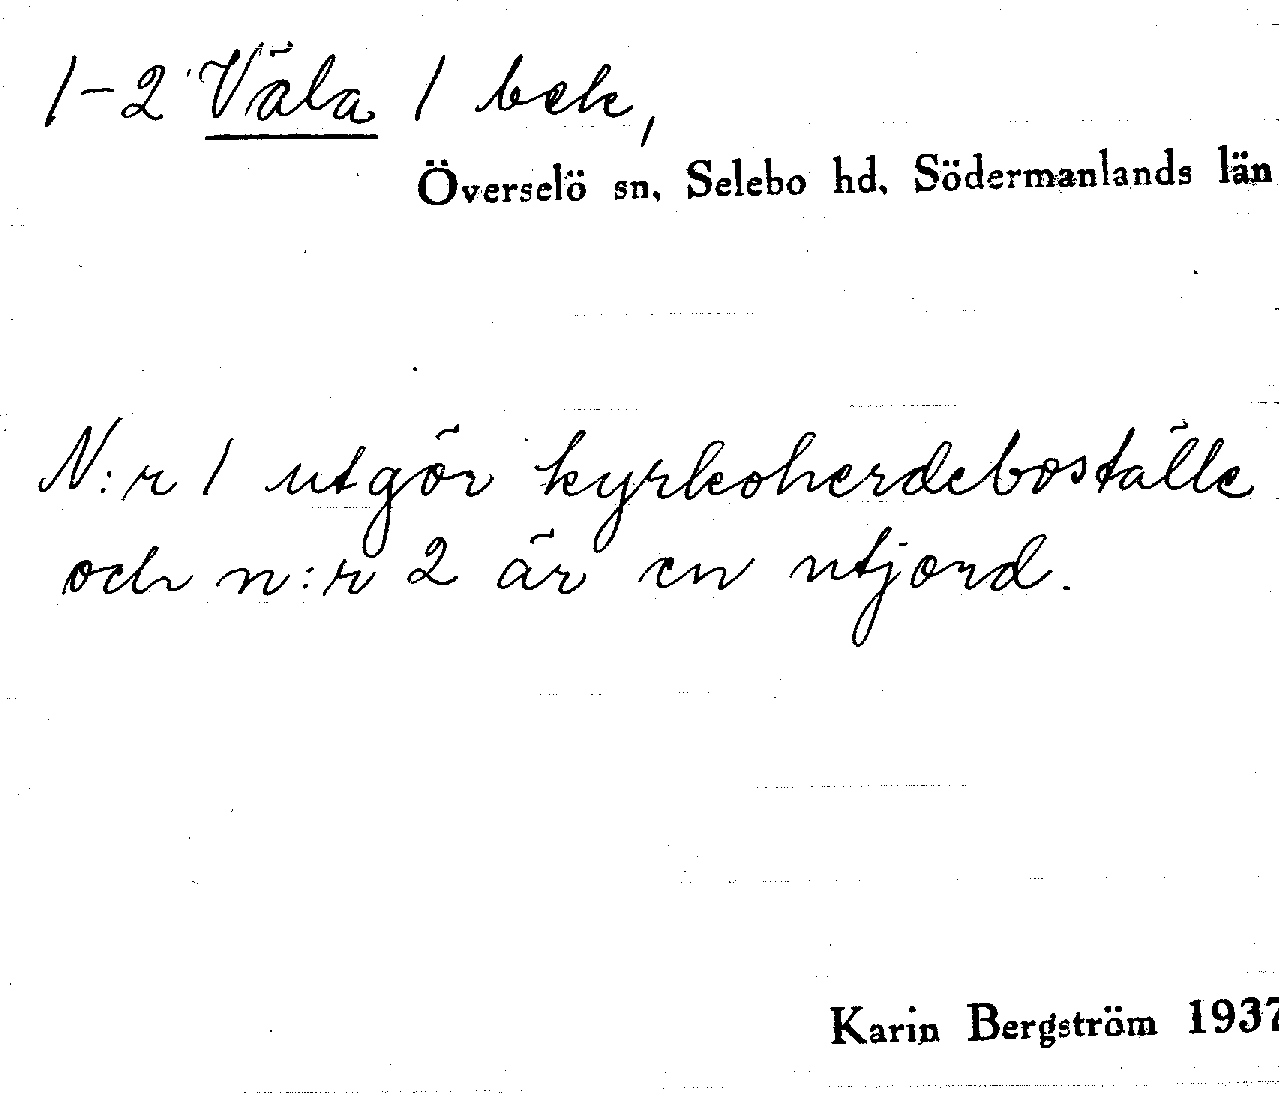 1-2 Väla 1 bek,
Överselö sn, Selebo hd, Södermanlands län
N:r 1 utgör kyrkoherdeboställe
och n:r 2 är en utjord.
Karin Bergström 1937